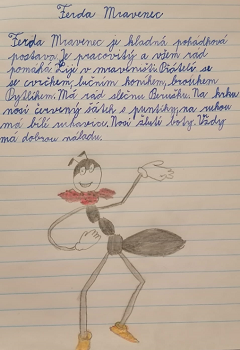 Ferda Mravenec
Ferda Mravenec je kladná pohádková
postava. Je pracovitý a všem rád
pomáhá. Žije v mraveništi. Přátelí se
se cvrčkem, lučním koníkem, broukem
Pytlíkem. Má rád slečnu Berušku. Na krku
nosí červený šátek s puntíky, na rukou
má bílé rukavice. Nosí žluté boty. Vždy
má dobrou náladu.